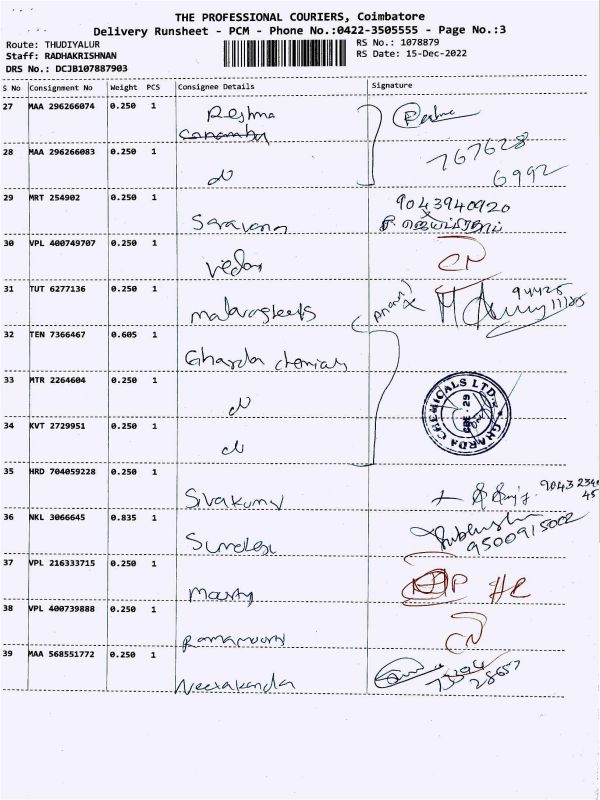 THE PROFESSIONAL COURIERS, Coimbatore
Delivery Runsheet - PCM - Phone No.:0422-3505555 - Page No.:3
Route: THUDIYALUR
RS No.: 1078879
Staff: RADHAKRISHNAN
RS Date: 15-Dec-2022
DRS No.: DCJB107887903
S No Consignment No Weight PCS Consignee Details Signature
27 MAA 296266074 0.250 1 Reshma
28 MAA 296266083 0.250 1 d
767628
6992
29 MRT 254902 0.250 1 Saravana 9043940920
30 VPL 400749707 0.250 1 CN
31 TUT 6277136 0.250 1 94425
32 TEN 7366467 0.605 1 Gharda chemicals
33 MTR 2264604 0.250 1 d
GHARDA CHEMICALS LTD.
CBE - 29
34 KVT 2729951 0.250 1 d
35 HRD 704059228 0.250 1 Sivakumar
36 NKL 3066645 0.835 1 9500915002
37 VPL 216333715 0.250 1
38 VPL 400739888 0.250 1 Ramamoorthy CN
39 MAA 568551772 0.250 1 Neelakanda
28657